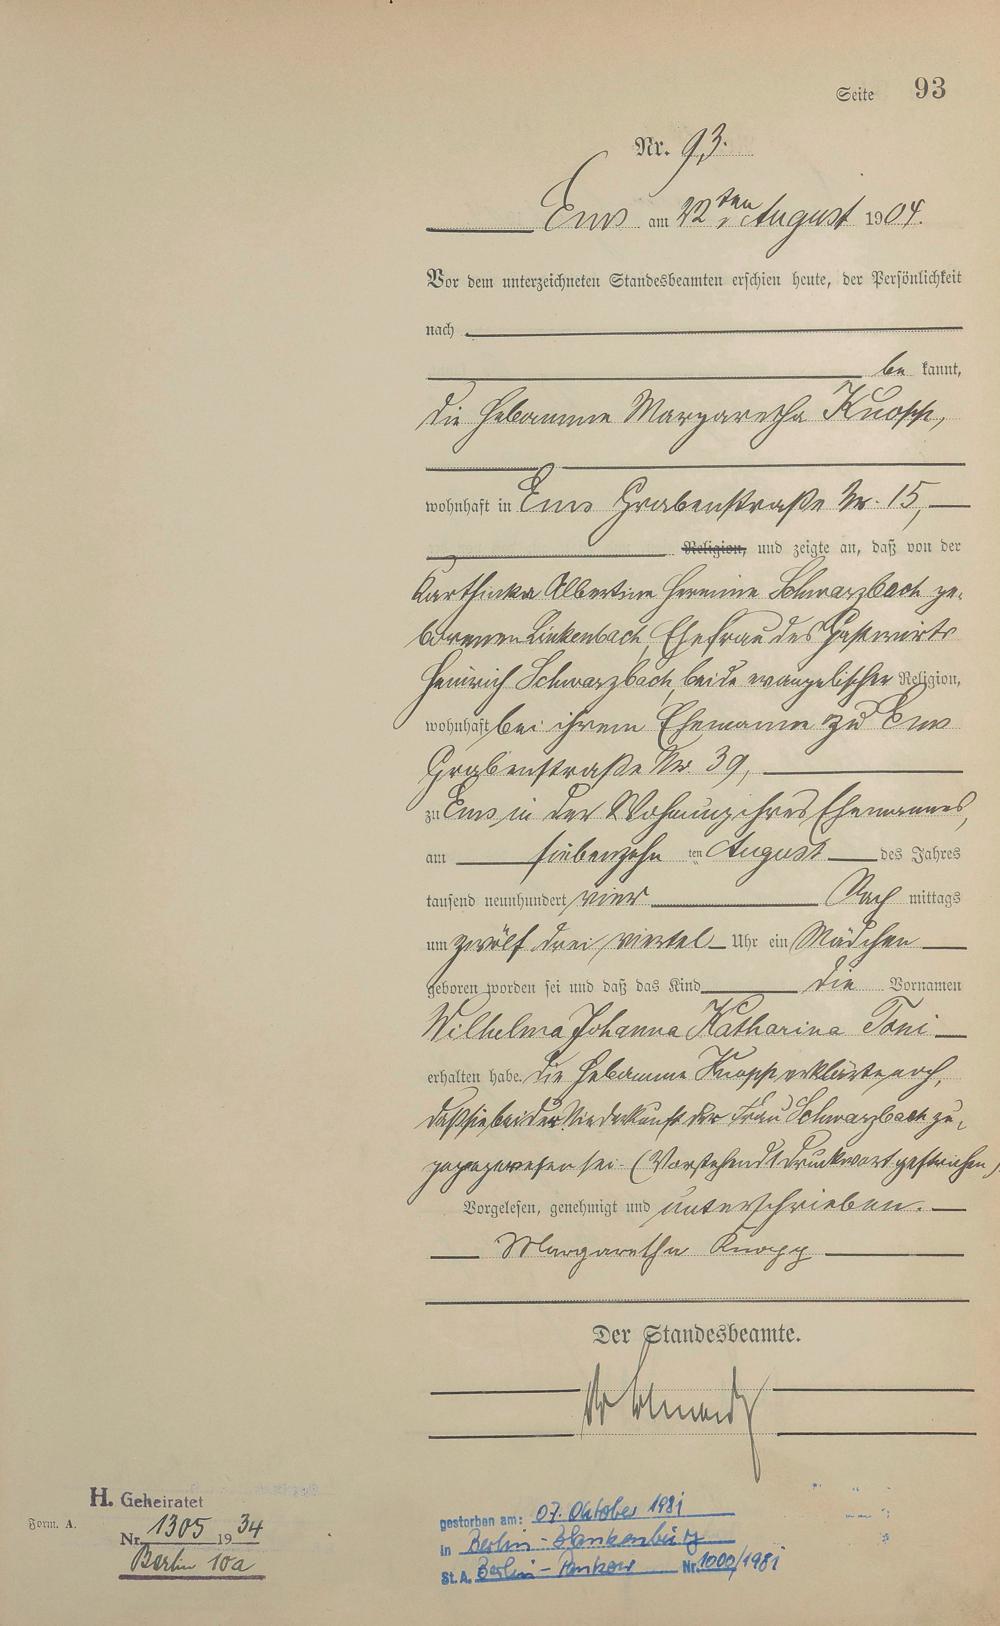 Seite 93
Nr. 93.
Ems am 22ten August 1904.
Vor dem unterzeichneten Standesbeamten erschien heute, der Persönlichkeit
nach
be kannt,
die Hebamme Margaretha Knopp,
wohnhaft in Ems Grabenstraße Nr. 15,
Religion, und zeigte an, daß von der
Karthinka Albertine Hermine Schwarzbach ge-
borenen Linkenbach, Ehefrau des Gastwirts
Heinrich Schwarzbach, beide evangelischer Religion,
wohnhaft bei ihrem Ehemanne zu Ems
Grabenstraße Nr. 39,
zu Ems in der Wohnung ihres Ehemannes,
am siebenzehn ten August des Jahres
tausend neunhundert vier Nach mittags
um zwölf drei viertel Uhr ein Mädchen
geboren worden sei und daß das Kind die Vornamen
Wilhelma Johanna Katharina Toni
erhalten habe. Die Hebamme Knopp erklärte noch,
daß sie bei der Niederkunft der Frau Schwarzbach zu-
gegen gewesen sei. (Vorstehend 1 Druckwort gestrichen)
Vorgelesen, genehmigt und unterschrieben.
Margaretha Knopp
Der Standesbeamte.
H. Geheiratet
Form. A.
Nr. 1305 1934
Berlin 10a
gestorben am: 07. Oktober 1981
in Berlin-Blankenburg
St.A. Berlin-Pankow Nr. 1000/1981